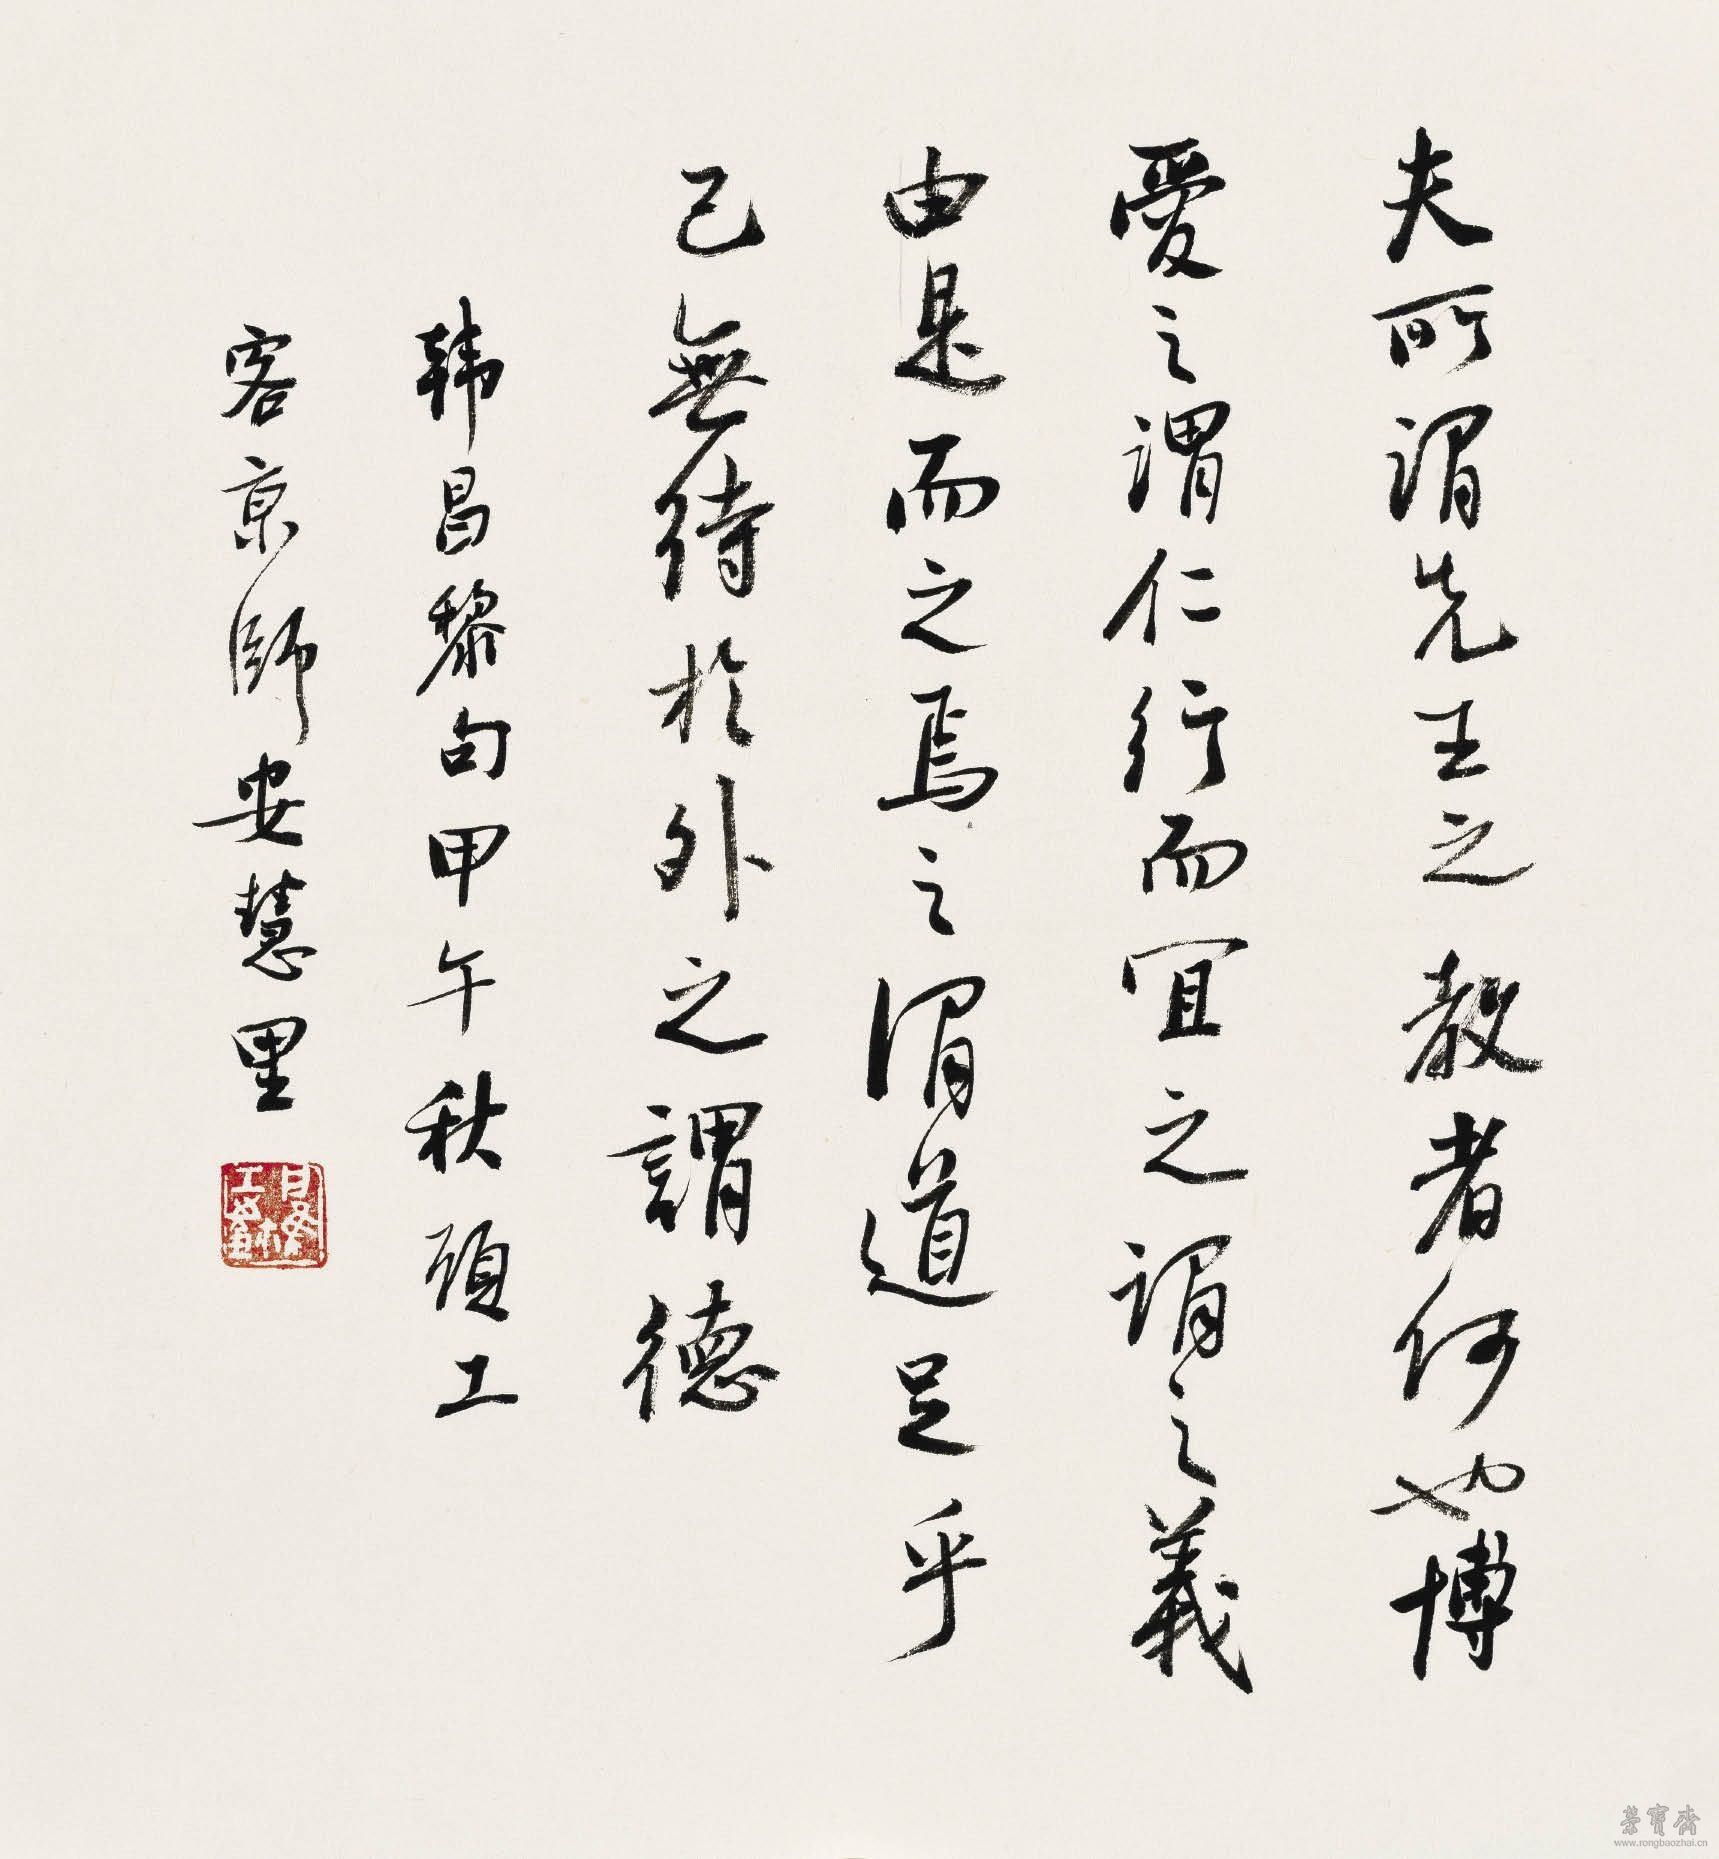 夫所謂先王之教者何也博
愛之謂仁行而宜之謂之義
由是而之焉之謂道足乎
己無待於外之謂德
韓昌黎句甲午秋工
客京師安慧里
榮寶齋
www.rongbaozhai.cn